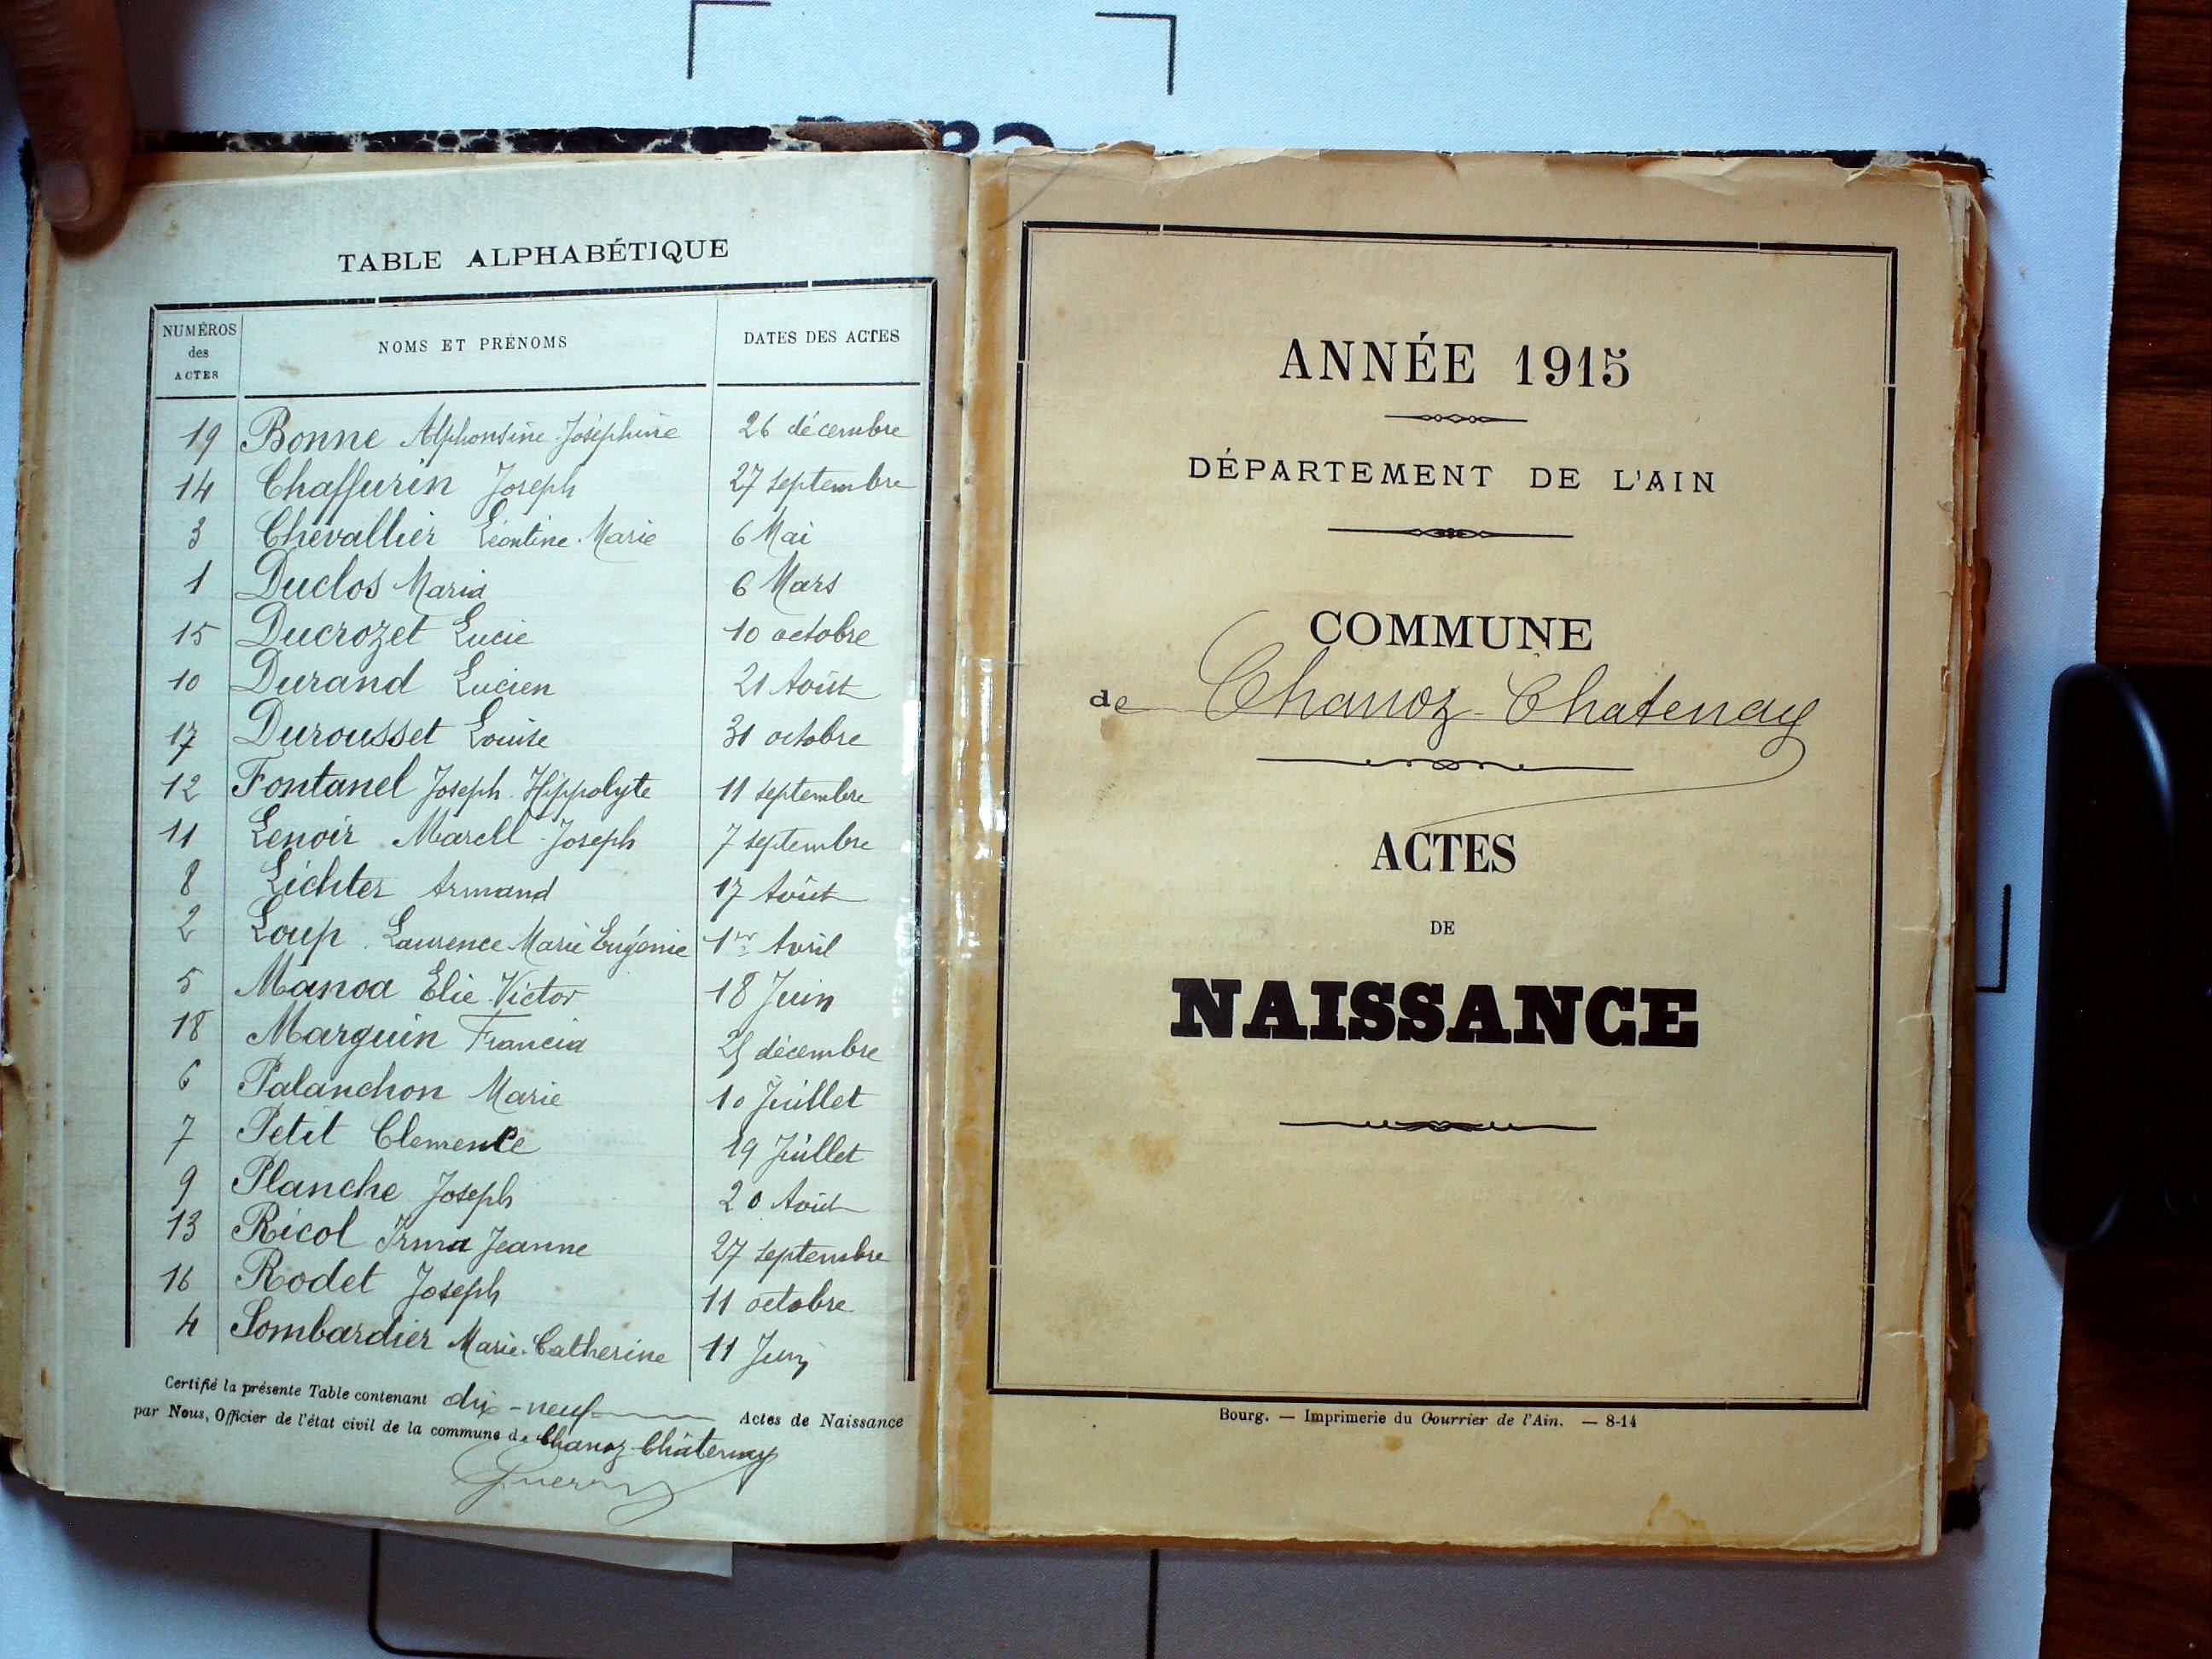 TABLE ALPHABÉTIQUE
NUMÉROS des ACTES NOMS ET PRÉNOMS DATES DES ACTES
19 Bonne Alphonsine Joséphine 26 décembre
14 Chaffurin Joseph 27 septembre
3 Chevallier Léontine Marie 6 Mai
1 Duclos Maria 6 Mars
15 Ducrozet Lucie 10 octobre
10 Durand Lucien 21 Août
17 Durousset Louise 31 octobre
12 Fontanel Joseph Hippolyte 11 septembre
11 Lenoir Marcel Joseph 7 septembre
8 Lichter Armand 17 Août
2 Loup Laurence Marie Eugénie 1er Avril
5 Manoa Elie Victor 18 Juin
18 Marguin Francia 25 décembre
6 Palanchon Marie 10 Juillet
7 Petit Clemence 19 Juillet
9 Planche Joseph 20 Août
13 Ricol Irma Jeanne 27 septembre
16 Rodet Joseph 11 octobre
4 Sombardier Marie-Catherine 11 Juin
Certifié la présente Table contenant dix-neuf Actes de Naissance
par Nous, Officier de l'état civil de la commune de Chanoz-Châtenay
ANNÉE 1915
DÉPARTEMENT DE L'AIN
COMMUNE
de Chanoz-Chatenay
ACTES
DE
NAISSANCE
Bourg. — Imprimerie du Courrier de l'Ain. — 8-14